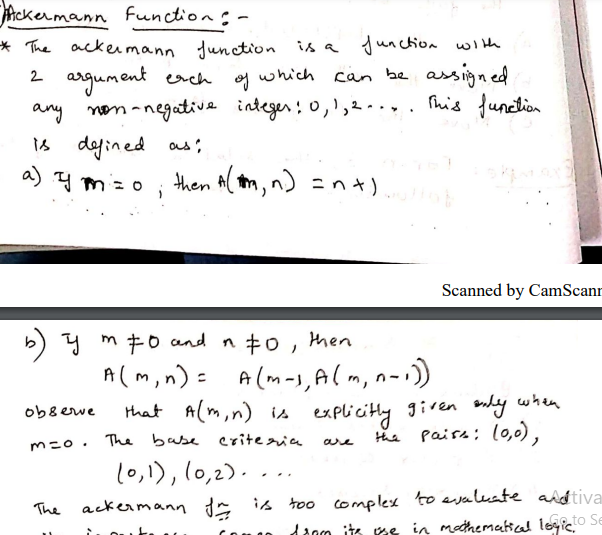 Ackermann Function :-
* The ackermann function is a function with
2 argument each of which can be assigned
any non-negative integer : 0, 1, 2 .... . This function
is defined as :
a) If m = 0 , then A(m, n) = n+1
Scanned by CamScann
b) If m ≠ 0 and n ≠ 0 , then
A(m, n) = A(m-1, A(m, n-1))
observe that A(m, n) is explicitly given only when
m=0 . The base criteria are the pairs : (0,0),
(0,1), (0,2) . ...
The ackermann fn is too complex to evaluate and
Activa
Go to Se
from its use in mathematical logic.